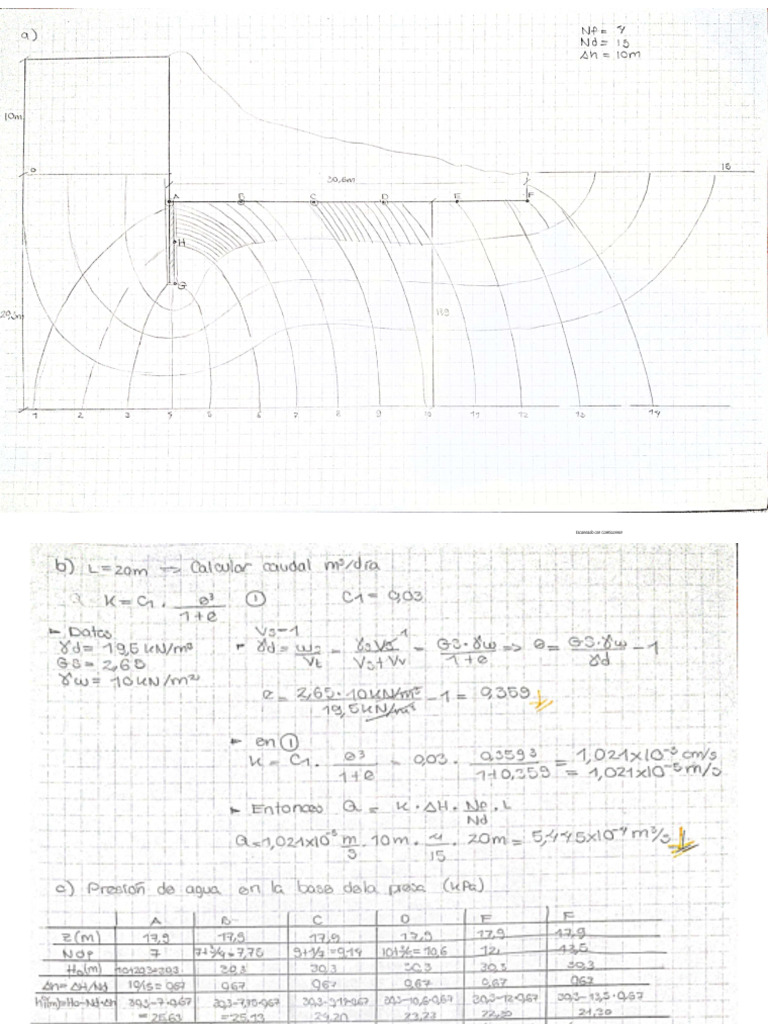 a)
Nf = 4
Nd = 15
Δh = 10m
10m
0
30,6m
15
A B C D E F
H
G
1 2 3 4 5 6 7 8 9 10 11 12 13 14
b) L = 20m => Calcular caudal m³/día
K = C1 · e³/(1+e) ① C1 = 0,03
- Datos
γd = 19,5 kN/m³
GS = 2,65
γw = 10 kN/m²
Vs=1
γd = ws/Vt = γs·Vs/(Vs+Vv) = GS·γw/(1+e) => e = GS·γw/γd - 1
e = 2,65·10kN/m³/19,5kN/m³ - 1 = 0,359
- en ①
K = C1 · e³/(1+e) = 0,03 · 0,359³/(1+0,359) = 1,021x10⁻³ cm/s
= 1,021x10⁻⁵ m/s
- Entonces Q = K · ΔH · Nf/Nd · L
Q = 1,021x10⁻⁵ m/s · 10m · 4/15 · 20m = 5,445x10⁻⁴ m³/s
c) Presión de agua en la base de la presa (kPa)
A B C D E F
Z(m) 17,9 17,9 17,9 17,9 17,9 17,9
Ndp 7 7+3/4=7,75 9+1/7=9,14 10,6 12 13,5
Ho(m) 10+20,3=30,3 30,3 30,3 30,3 30,3 30,3
Δh = ΔH/Nd 10/15 = 0,67 0,67 0,67 0,67 0,67 0,67
30,3-7·0,67 30,3-7,75·0,67 30,3-9,14·0,67 30,3-10,6·0,67 30,3-12·0,67 30,3-13,5·0,67
= 25,63 = 25,13 24,20 23,23 22,30 21,30